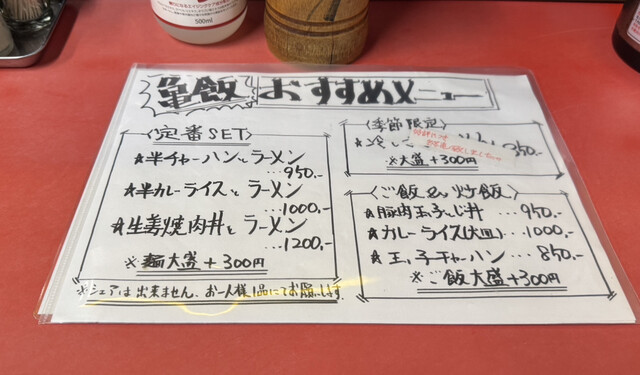 500ml
亀飯 おすすめメニュー
〈定番SET〉
★半チャーハンとラーメン
…950.-
★半カレーライスとラーメン
…1000.-
★生姜焼肉丼とラーメン
…1200.-
※麺大盛+300円
※シェアは出来ません、お一人様1品にてお願いします。
〈季節限定〉
※大盛+300円
〈ご飯&炒飯〉
★豚肉玉子とじ丼 …950.-
★カレーライス(大皿)…1000.-
★玉子チャーハン …850.-
※ご飯大盛+300円